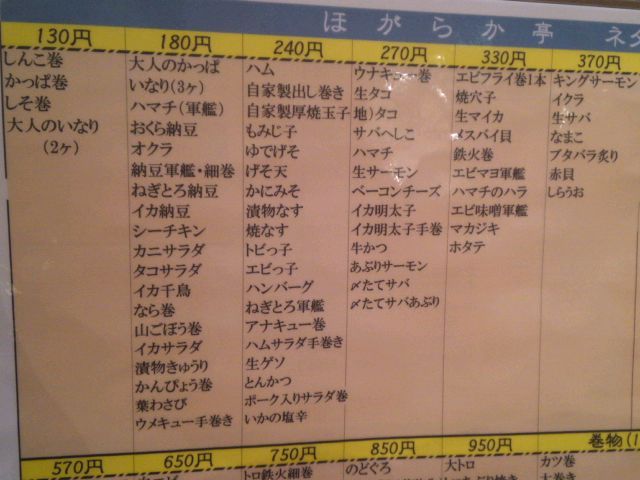 ほがらか亭 ネタ
130円
しんこ巻
かっぱ巻
しそ巻
大人のいなり
(2ヶ)
180円
大人のかっぱ
いなり(3ヶ)
ハマチ(軍艦)
おくら納豆
オクラ
納豆軍艦・細巻
ねぎとろ納豆
イカ納豆
シーチキン
カニサラダ
タコサラダ
イカ千鳥
なら巻
山ごぼう巻
イカサラダ
漬物きゅうり
かんぴょう巻
葉わさび
ウメキュー手巻き
240円
ハム
自家製出し巻き
自家製厚焼玉子
もみじ子
ゆでげそ
げそ天
かにみそ
漬物なす
焼なす
トビっ子
エビっ子
ハンバーグ
ねぎとろ軍艦
アナキュー巻
ハムサラダ手巻き
生ゲソ
とんかつ
ポーク入りサラダ巻
いかの塩辛
270円
ウナキュー巻
生タコ
地)タコ
サバへしこ
ハマチ
生サーモン
ベーコンチーズ
イカ明太子
イカ明太子手巻
牛かつ
あぶりサーモン
〆たてサバ
〆たてサバあぶり
330円
エビフライ巻1本
焼穴子
生マイカ
メスバイ貝
鉄火巻
エビマヨ軍艦
ハマチのハラ
エビ味噌軍艦
マカジキ
ホタテ
370円
キングサーモン
イクラ
生サバ
なまこ
ブタバラ炙り
赤貝
しらうお
570円
650円
750円
トロ鉄火細巻
850円
のどぐろ
950円
大トロ
巻物(1
カツ巻
大巻き